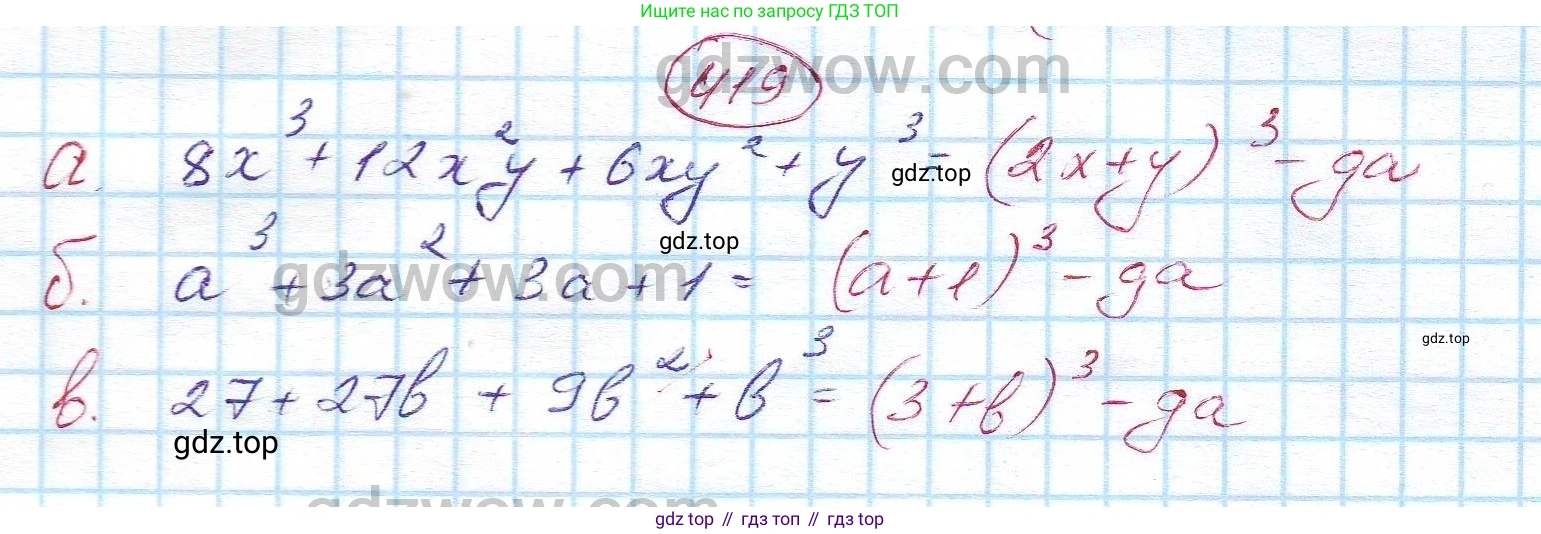 Ищите нас по запросу ГДЗ ТОП
gdzwow.com
419
а. 8x³ + 12x²y + 6xy² + y³ = (2x+y)³ - да
gdz.top
gdz.top
б. a³ + 3a² + 3a + 1 = (a+1)³ - да
gdzwow.com
gdz.top
в. 27 + 27b + 9b² + b³ = (3+b)³ - да
gdz.top
gdzwow.com
gdz top // гдз топ // gdz.top